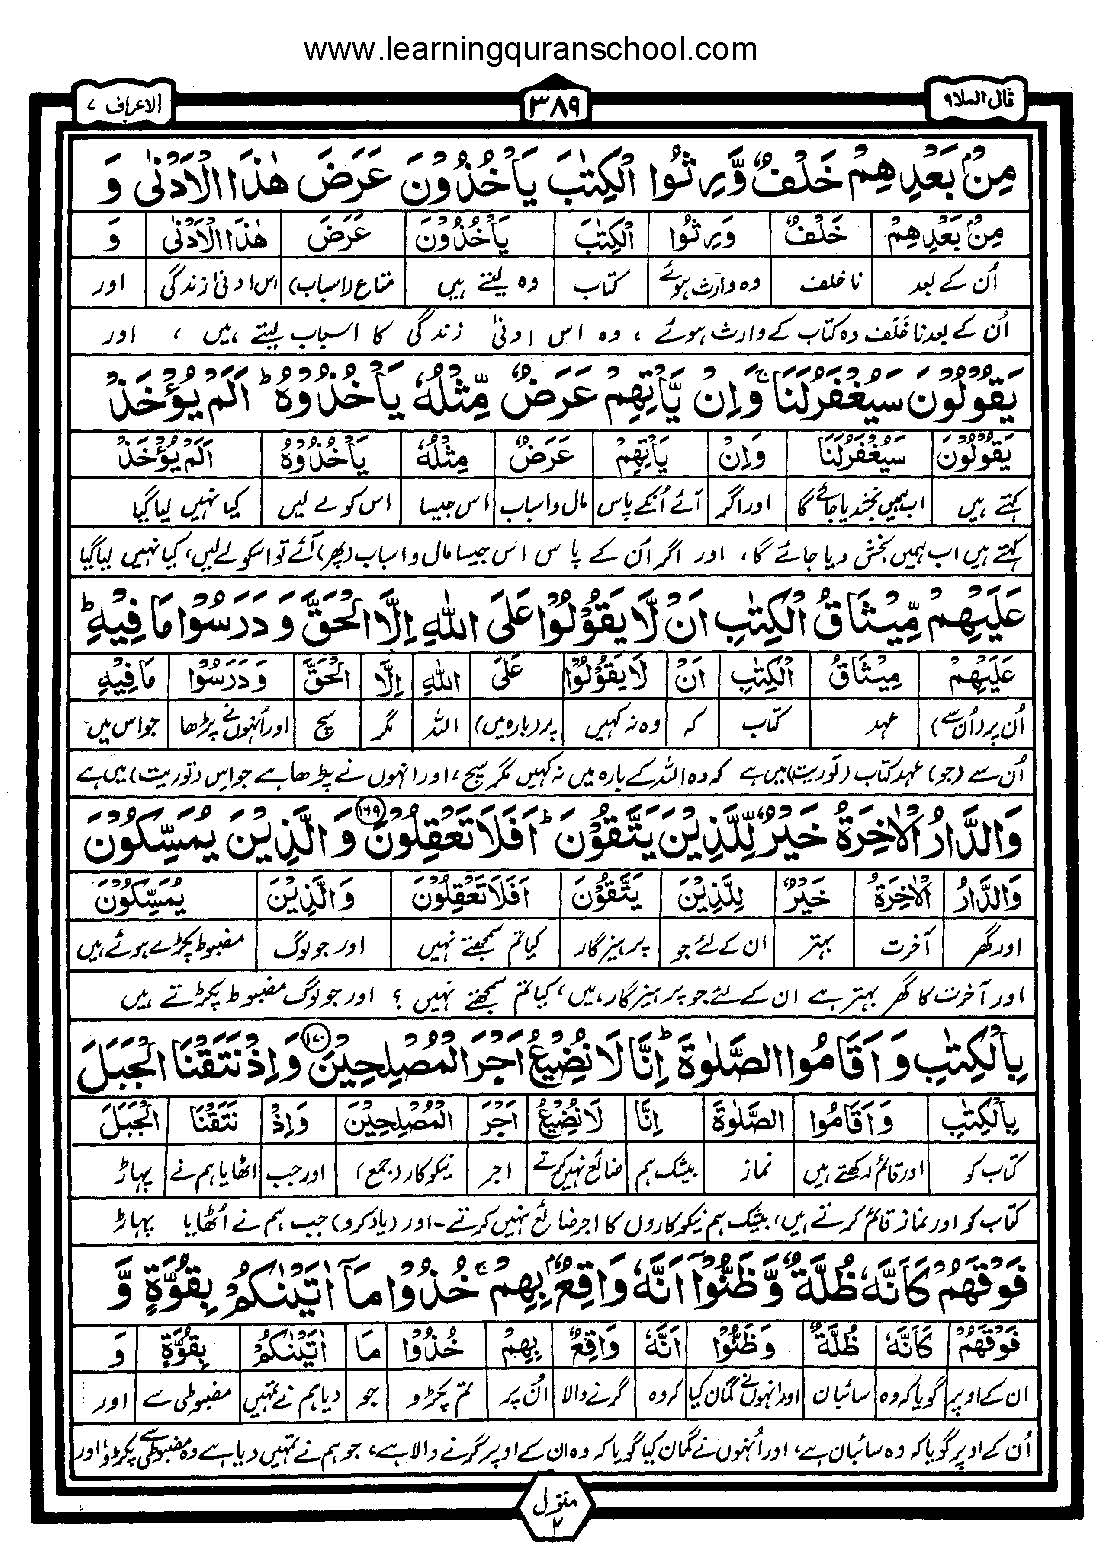 www.learningquranschool.com
قال الملا ۹
۳۸۹
الاعراف ۷
مِنْۢ بَعْدِهِمْ خَلْفٌ وَّرِثُوا الْكِتٰبَ يَاْخُذُوْنَ عَرَضَ هٰذَا الْاَدْنٰى وَ
مِنْۢ بَعْدِهِمْ خَلْفٌ وَرِثُوا الْكِتٰبَ يَاْخُذُوْنَ عَرَضَ هٰذَا الْاَدْنٰى وَ
اُن کے بعد ناخلف وہ وارث ہوئے کتاب وہ لیتے ہیں متاع (اسباب) اس ادنیٰ زندگی اور
اُن کے بعد ناخلف وہ کتاب کے وارث ہوئے ، وہ اس ادنیٰ زندگی کا اسباب لیتے ہیں ، اور
يَقُوْلُوْنَ سَيُغْفَرُلَنَا ۚ وَاِنْ يَّاْتِهِمْ عَرَضٌ مِّثْلُهٗ يَاْخُذُوْهُ ؕ اَلَمْ يُؤْخَذْ
يَقُوْلُوْنَ سَيُغْفَرُلَنَا وَاِنْ يَاْتِهِمْ عَرَضٌ مِثْلُهٗ يَاْخُذُوْهُ اَلَمْ يُؤْخَذْ
کہتے ہیں اب ہمیں بخشدیا جائے گا اور اگر آئے اُنکے پاس مال و اسباب اس جیسا اس کو لے لیں کیا نہیں لیا گیا
کہتے ہیں اب ہمیں بخش دیا جائے گا، اور اگر اُن کے پاس اس جیسا مال و اسباب (پھر) آئے تو اسکو لے لیں، کیا نہیں لیا گیا
عَلَيْهِمْ مِّيْثَاقُ الْكِتٰبِ اَنْ لَّا يَقُوْلُوْا عَلَى اللّٰهِ اِلَّا الْحَقَّ وَ دَرَسُوْا مَا فِيْهِ ؕ
عَلَيْهِمْ مِيْثَاقُ الْكِتٰبِ اَنْ لَا يَقُوْلُوْا عَلَى اللّٰهِ اِلَّا الْحَقَّ وَ دَرَسُوْا مَا فِيْهِ
اُن پر (اُن سے) عہد کتاب کہ وہ نہ کہیں پر (بارہ میں) اللہ مگر سچ اور اُنہوں نے پڑھا جو اس میں
اُن سے (جو) عہد کتاب (توریت) میں ہے کہ وہ اللہ کے بارہ میں نہ کہیں مگر سچ ، اور انہوں نے پڑھا ہے جو اس (توریت) میں ہے
وَالدَّارُ الْاٰخِرَةُ خَيْرٌ لِّلَّذِيْنَ يَتَّقُوْنَ ؕ اَفَلَا تَعْقِلُوْنَ ۱۶۹ وَالَّذِيْنَ يُمَسِّكُوْنَ
وَالدَّارُ الْاٰخِرَةُ خَيْرٌ لِلَّذِيْنَ يَتَّقُوْنَ اَفَلَا تَعْقِلُوْنَ وَالَّذِيْنَ يُمَسِّكُوْنَ
اور گھر آخرت بہتر ان کے لئے جو پرہیزگار کیا تم سمجھتے نہیں اور جو لوگ مضبوط پکڑے ہوئے ہیں
اور آخرت کا گھر بہتر ہے ان کے لئے جو پرہیزگار ہیں، کیا تم سمجھتے نہیں ؟ اور جو لوگ مضبوط پکڑتے ہیں
بِالْكِتٰبِ وَ اَقَامُوا الصَّلٰوةَ ؕ اِنَّا لَا نُضِيْعُ اَجْرَ الْمُصْلِحِيْنَ ۱۷۰ وَاِذْ نَتَقْنَا الْجَبَلَ
بِالْكِتٰبِ وَ اَقَامُوا الصَّلٰوةَ اِنَّا لَا نُضِيْعُ اَجْرَ الْمُصْلِحِيْنَ وَاِذْ نَتَقْنَا الْجَبَلَ
کتاب کو اور قائم رکھتے ہیں نماز بیشک ہم ضائع نہیں کرتے اجر نیکوکار (جمع) اور جب اٹھایا ہم نے پہاڑ
کتاب کو اور نماز قائم کرتے ہیں، بیشک ہم نیکوکاروں کا اجر ضائع نہیں کرتے۔ اور (یاد کرو) جب ہم نے اُٹھایا پہاڑ
فَوْقَهُمْ كَاَنَّهٗ ظُلَّةٌ وَّظَنُّوْۤا اَنَّهٗ وَاقِعٌۢ بِهِمْ ۚ خُذُوْا مَاۤ اٰتَيْنٰكُمْ بِقُوَّةٍ وَّ
فَوْقَهُمْ كَاَنَّهٗ ظُلَّةٌ وَظَنُّوْا اَنَّهٗ وَاقِعٌ بِهِمْ خُذُوْا مَا اٰتَيْنٰكُمْ بِقُوَّةٍ وَ
ان کے اوپر گویا کہ وہ سائبان اور انہوں نے گمان کیا کہ وہ گرنے والا اُن پر تم پکڑو جو دیا ہم نے تمہیں مضبوطی سے اور
اُن کے اوپر گویا کہ وہ سائبان ہے، اور اُنہوں نے گمان کیا گویا کہ وہ ان کے اوپر گرنے والا ہے، جو ہم نے تمہیں دیا ہے وہ مضبوطی سے پکڑو اور
منزل ۲